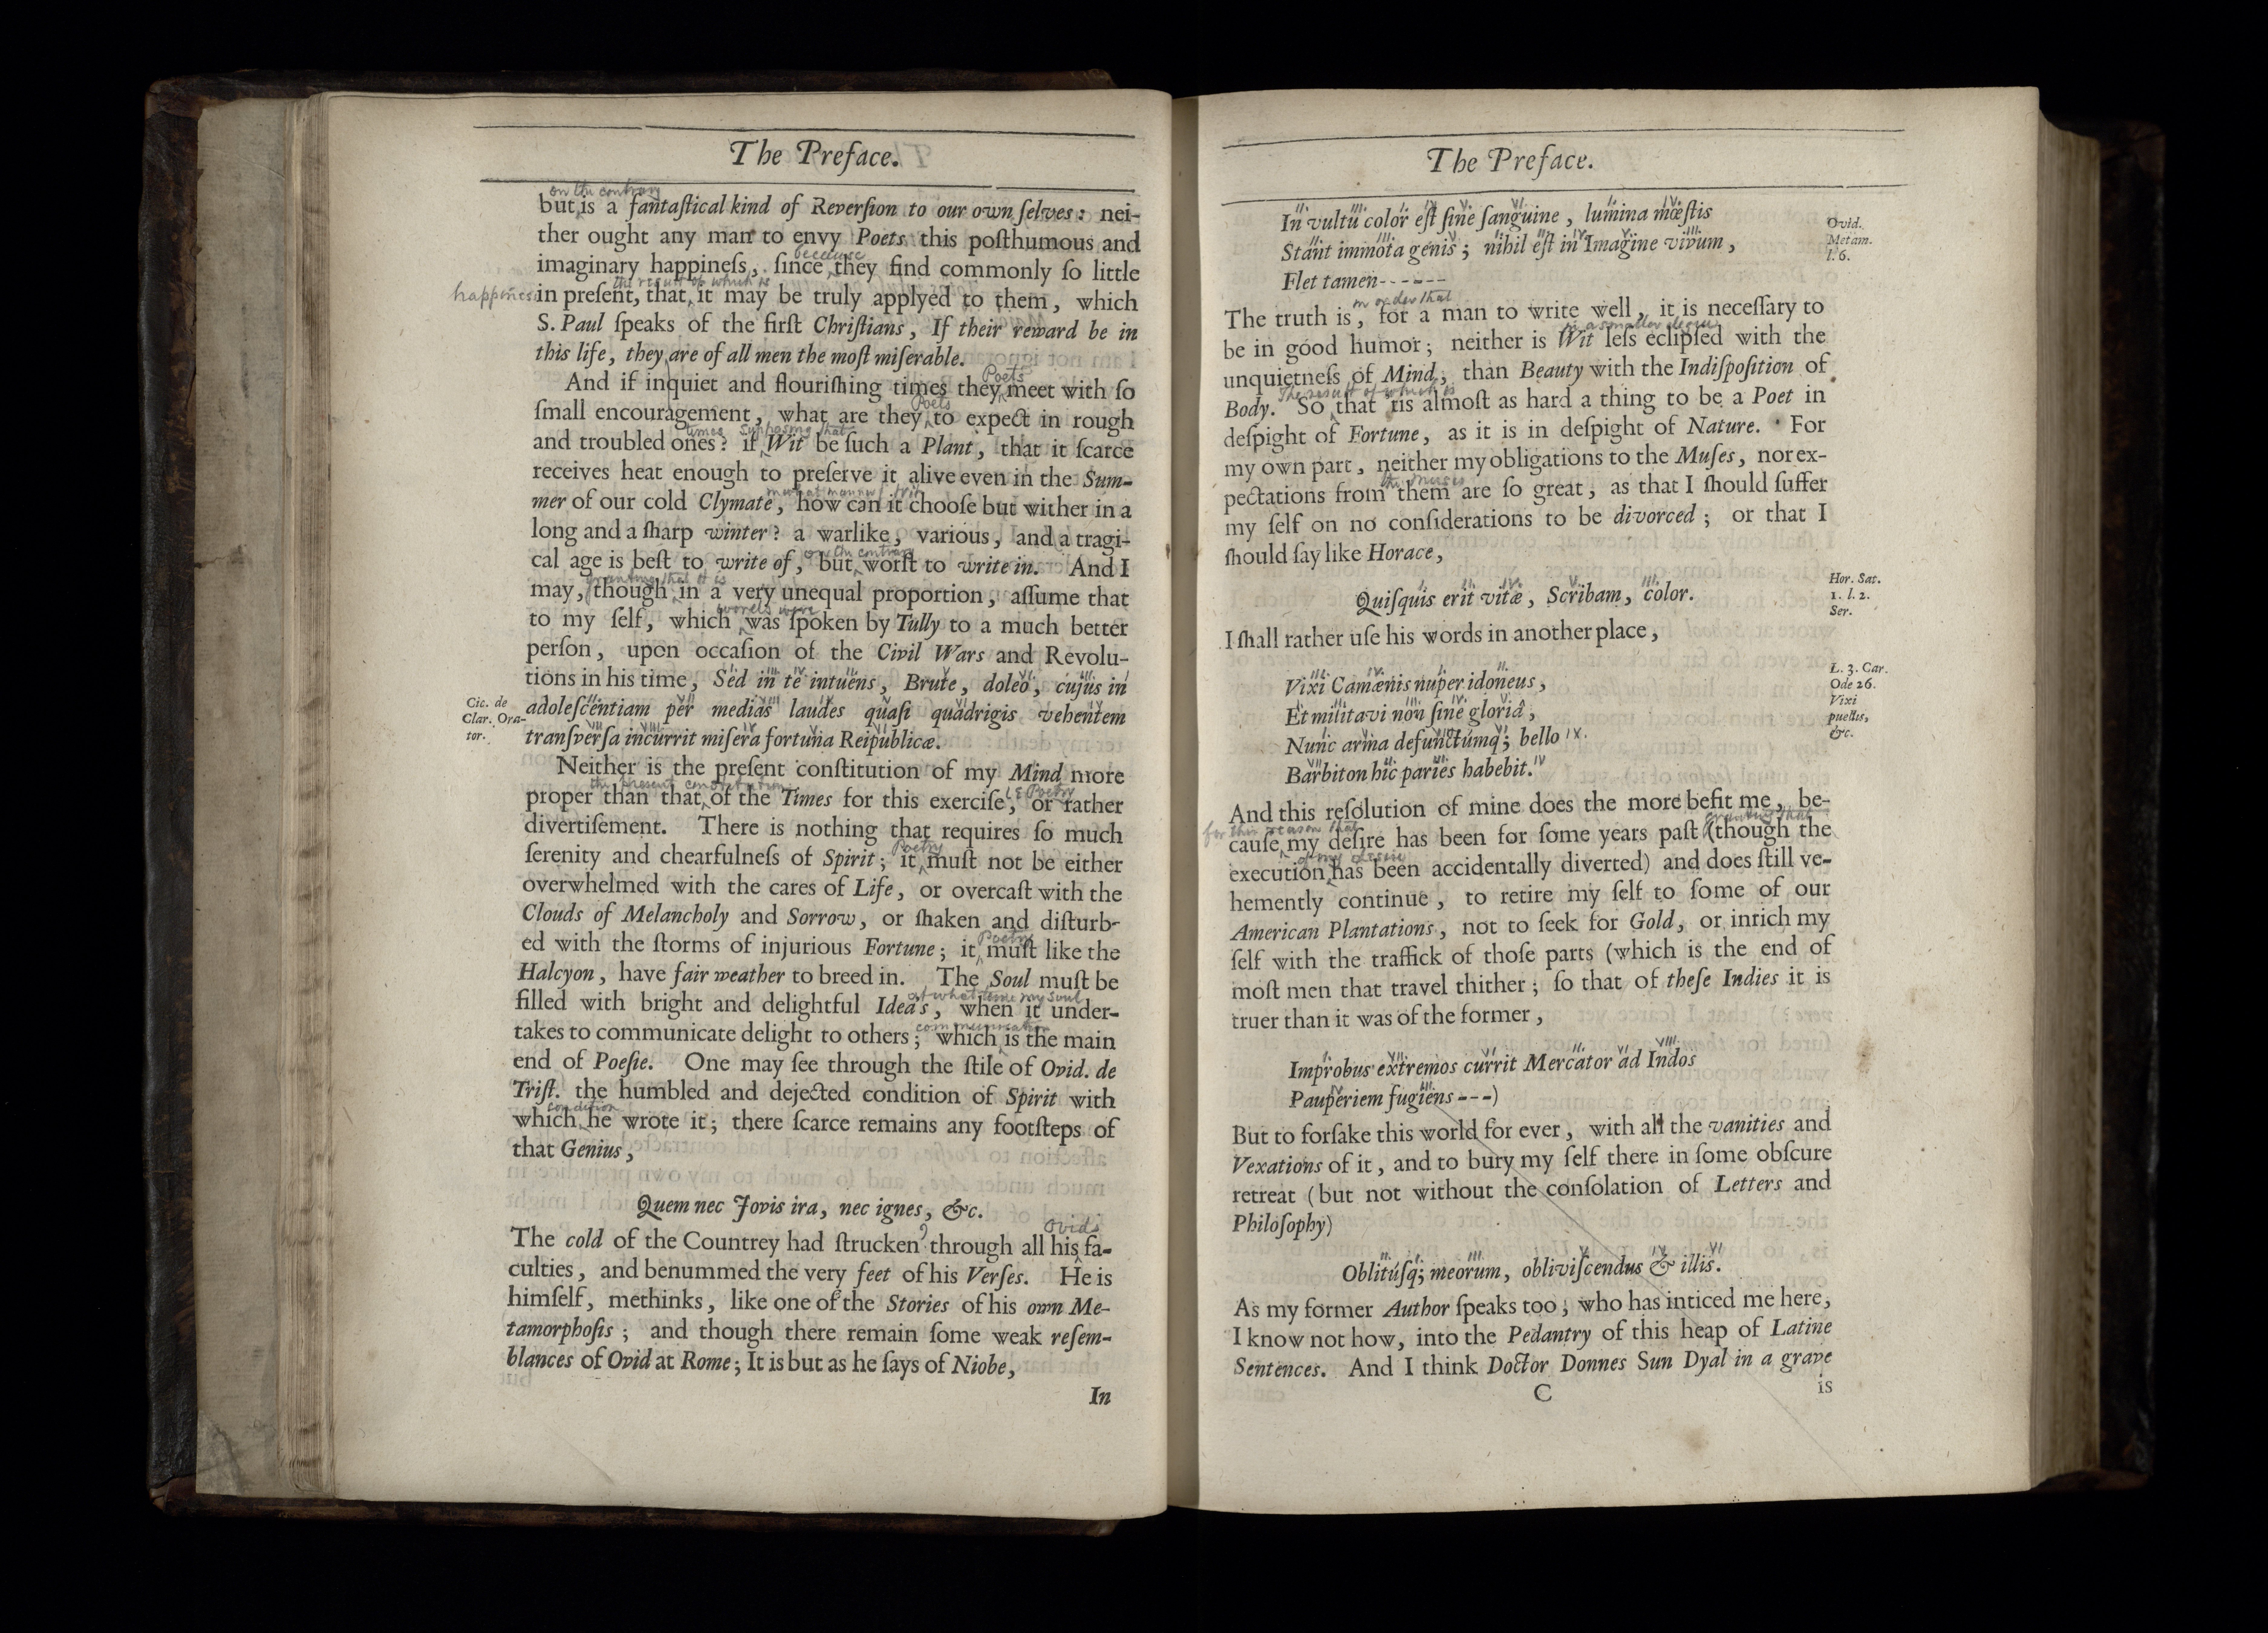 The Preface.
on the contrary
but is a fantaſtical kind of Reverſion to our own ſelves: nei-
ther ought any man to envy Poets this poſthumous and
because
imaginary happineſs, ſince they find commonly ſo little
the result of which is
happiness in preſent, that it may be truly applyed to them, which
S. Paul ſpeaks of the firſt Chriſtians, If their reward be in
this life, they are of all men the moſt miſerable.
Poets
And if in quiet and flouriſhing times they meet with ſo
Poets
ſmall encouragement, what are they to expect in rough
times supposing that
and troubled ones? if Wit be ſuch a Plant, that it ſcarce
receives heat enough to preſerve it alive even in the Sum-
in what manner
mer of our cold Clymate, how can it chooſe but wither in a
long and a ſharp winter? a warlike, various, and a tragi-
on the contrary
cal age is beſt to write of, but worſt to write in. And I
granting that it is
may, though in a very unequal proportion, aſſume that
words were
to my ſelf, which was ſpoken by Tully to a much better
perſon, upon occaſion of the Civil Wars and Revolu-
tions in his time, Sed in te intuens, Brute, doleo, cujus in
Cic. de
Clar. Ora-
tor.
adoleſcentiam per medias laudes quaſi quadrigis vehentem
tranſverſa incurrit miſera fortuna Reipublicæ.
Neither is the preſent conſtitution of my Mind more
the present constitution Poetry
proper than that of the Times for this exerciſe, or rather
divertiſement. There is nothing that requires ſo much
Poetry
ſerenity and chearfulneſs of Spirit; it muſt not be either
overwhelmed with the cares of Life, or overcaſt with the
Clouds of Melancholy and Sorrow, or ſhaken and diſturb-
Poetry
ed with the ſtorms of injurious Fortune; it muſt like the
Halcyon, have fair weather to breed in. The Soul muſt be
at what time my soul
filled with bright and delightful Idea's, when it under-
communication
takes to communicate delight to others; which is the main
end of Poeſie. One may ſee through the ſtile of Ovid. de
Triſt. the humbled and dejected condition of Spirit with
condition
which he wrote it; there ſcarce remains any footſteps of
that Genius,
Quem nec Jovis ira, nec ignes, &c.
Ovids
The cold of the Countrey had ſtrucken through all his fa-
culties, and benummed the very feet of his Verſes. He is
himſelf, methinks, like one of the Stories of his own Me-
tamorphoſis; and though there remain ſome weak reſem-
blances of Ovid at Rome; It is but as he ſays of Niobe,
In
The Preface.
In vultu color eſt ſine ſanguine, lumina mœſtis
Stant immota genis; nihil eſt in Imagine vivum,
Flet tamen------
Ovid.
Metam.
l. 6.
in order that
The truth is, for a man to write well, it is neceſſary to
in a smaller degree
be in good humor; neither is Wit leſs eclipſed with the
unquietneſs of Mind, than Beauty with the Indiſpoſition of
The result of which is
Body. So that 'tis almoſt as hard a thing to be a Poet in
deſpight of Fortune, as it is in deſpight of Nature. For
my own part, neither my obligations to the Muſes, nor ex-
the Muses
pectations from them are ſo great, as that I ſhould ſuffer
my ſelf on no conſiderations to be divorced; or that I
ſhould ſay like Horace,
Quiſquis erit vitæ, Scribam, color.
Hor. Sat.
1. l. 2.
Ser.
I ſhall rather uſe his words in another place,
Vixi Camænis nuper idoneus,
Et militavi non ſine gloriâ,
Nunc arma defunctúmq; bello
Barbiton hic paries habebit.
L. 3. Car.
Ode 26.
Vixi
puellis,
&c.
And this reſolution of mine does the more befit me, be-
for this reason that granting that
cauſe my deſire has been for ſome years paſt (though the
of my desire
execution has been accidentally diverted) and does ſtill ve-
hemently continue, to retire my ſelf to ſome of our
American Plantations, not to ſeek for Gold, or inrich my
ſelf with the traffick of thoſe parts (which is the end of
moſt men that travel thither; ſo that of theſe Indies it is
truer than it was of the former,
Improbus extremos currit Mercator ad Indos
Pauperiem fugiens---)
But to forſake this world for ever, with all the vanities and
Vexations of it, and to bury my ſelf there in ſome obſcure
retreat (but not without the conſolation of Letters and
Philoſophy)
Oblitúſq; meorum, obliviſcendus & illis.
As my former Author ſpeaks too, who has inticed me here,
I know not how, into the Pedantry of this heap of Latine
Sentences. And I think Doctor Donnes Sun Dyal in a grave
C is